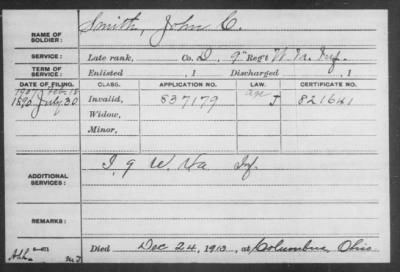 NAME OF SOLDIER: Smith, John C.
SERVICE: Late rank, Co. D, 9" Reg't W. Va. Inf.
TERM OF SERVICE: Enlisted , 1 Discharged , 1
DATE OF FILING. CLASS. APPLICATION NO. LAW. CERTIFICATE NO.
1907 Feb 18 age
1890 July 30 Invalid, 837179 J 821641
Widow,
Minor,
ADDITIONAL SERVICES: I, 9 W. Va Inf.
REMARKS:
Died Dec 24, 1910, at Columbus, Ohio